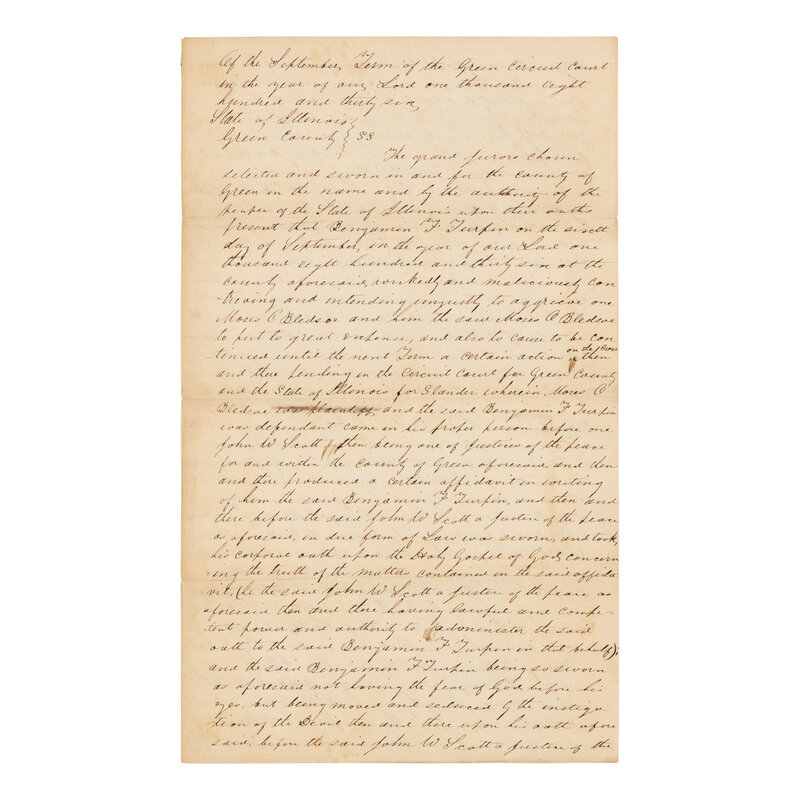 Of the September, Term of the Green circuit court
in the year of our, Lord one thousand eight
hundred and thirty six,
State of Illinois }
Green County } SS
The grand jurors chosen
selected and sworn in and for the county of
Green in the name and by the authority of the
people of the State of Illinois upon their oaths
present that Benjamin F Turpin on the sixth
day of September, in the year of our Lord one
thousand eight hundred and thirty six at the
county aforesaid, wickedly and maliciously con
triving and intending unjustly to aggrieve one
Moses O Bledsoe and him the said Moses O Bledsoe
to put to great expense, and also to cause to be con-
-tinued until the next Term a certain action on the case then
and there pending in the Circuit Court for Green County
and the State of Illinois for Slander wherein, Moses O
Bledsoe was plaintiff, and the said Benjamin F Turpin
was defendant came in his proper person before one
John W Scott, then being one of justices of the peace
for and within the county of Green aforesaid, and then
and there produced a certain affidavit in writing
of him the said Benjamin F Turpin, and then and
there before the said John W Scott a justice of the peace
as aforesaid, in due form of Law was sworn, and took
his corporal oath upon the Holy Gospel of God, concern
-ing the truth of the matters contained in the said affida
-vit, (he the said John W Scott a justice of the peace as
aforesaid then and there having lawful and compe-
-tent power and authority to administer the said
oath to the said Benjamin F Turpin in that behalf);
and the said Benjamin F Turpin being so sworn
as aforesaid not having the fear of God before his
eyes. but being moved and seduced by the instiga
-tion of the Devil then and there upon his oath afore
said, before the said John W Scott a justice of the